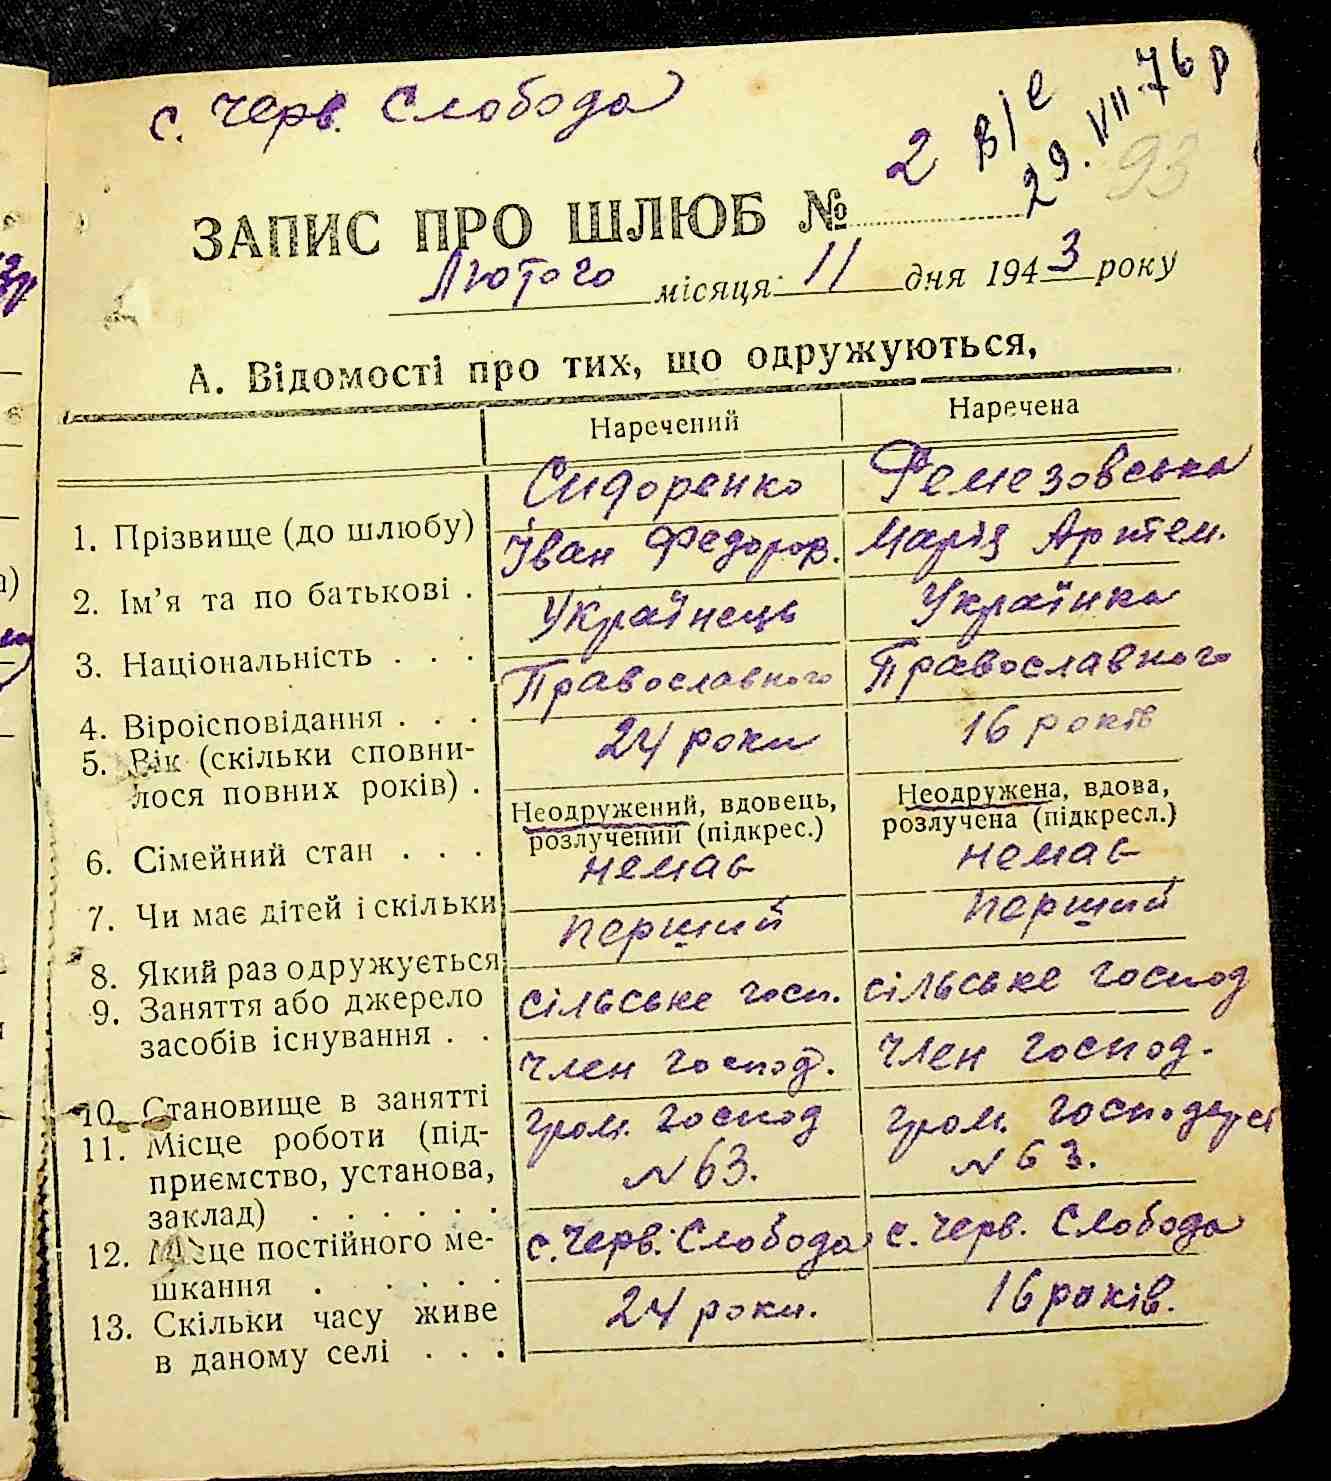 с. Черв. Слобода
2 в/е
29.VII 76 р
93
ЗАПИС ПРО ШЛЮБ №
Лютого місяця 11 дня 1943 року
А. Відомості про тих, що одружуються,
Наречений Наречена
1. Прізвище (до шлюбу) Сидоренко Ремезовська
2. Ім'я та по батькові . Іван Федоров. Марія Артем.
3. Національність . . . Українець Українка
4. Віроісповідання . . . Православного Православного
5. Вік (скільки сповни-
лося повних років) . 24 роки 16 років
6. Сімейний стан . . . Неодружений, вдовець, Неодружена, вдова,
розлучений (підкрес.) розлучена (підкресл.)
7. Чи має дітей і скільки немає немає
8. Який раз одружується перший перший
9. Заняття або джерело
засобів існування . . сільське госп. сільське господ
10. Становище в занятті член господ. член господ.
11. Місце роботи (під- гром. господ гром. господарст
приємство, установа, N 63. N 63.
заклад) . . . . . .
12. Місце постійного ме- с. Черв. Слобода с. Черв. Слобода
шкання . . . . .
13. Скільки часу живе 24 роки. 16 років.
в даному селі . . .